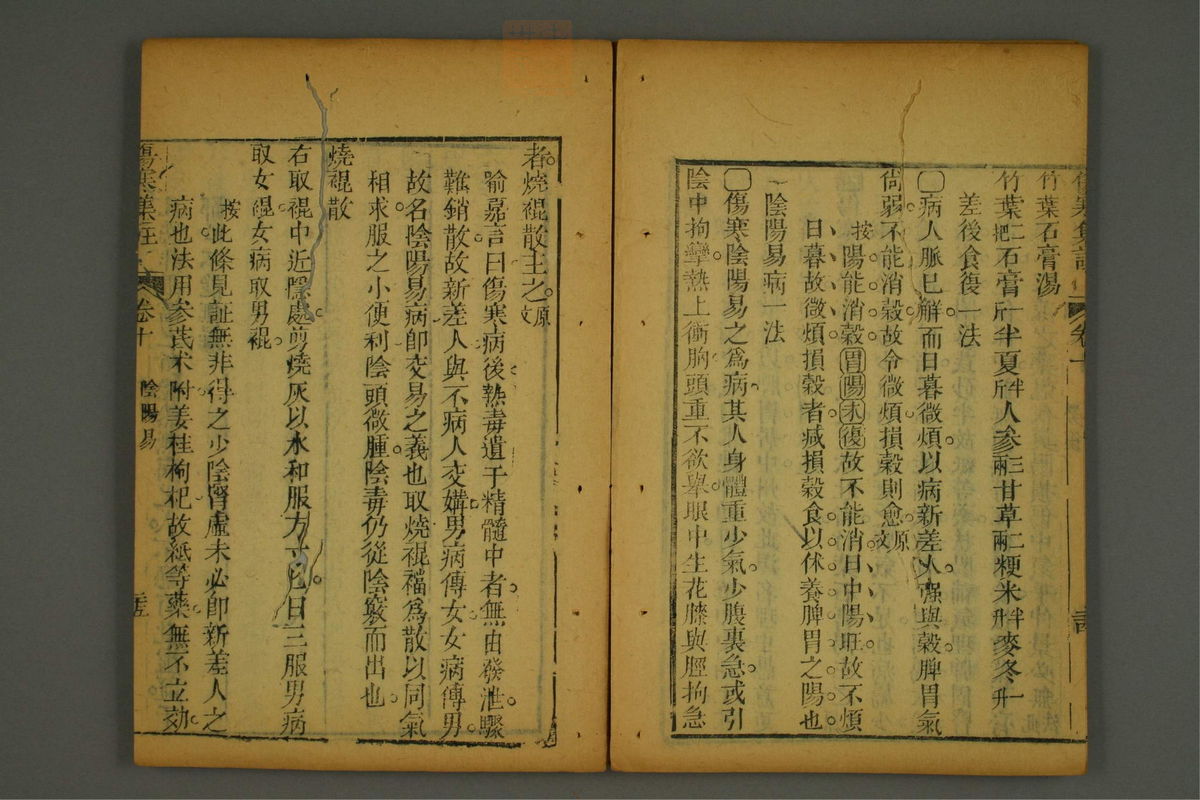 傷寒集註 卷十
竹葉石膏湯
竹葉二把石膏一斤半夏半斤人參三兩甘草二兩粳米半升麥冬一升
差後食復一法
病人脈巳解而日暮微煩以病新差人强與穀脾胃氣
尚弱不能消穀故令微煩損穀則愈原文
按陽能消穀胃陽未復故不能消日中陽旺故不煩
日暮故微煩損穀者減損穀食以休養脾胃之陽也
陰陽易病一法
傷寒陰陽易之爲病其人身體重少氣少腹裏急或引
陰中拘攣熱上衝胸頭重不欲舉眼中生花膝與脛拘急
者燒裩散主之原文
喻嘉言曰傷寒病後熱毒遺于精髓中者無由發泄驟
難銷散故新差人與不病人交媾男病傳女女病傳男
故名陰陽易病卽交易之義也取燒裩襠爲散以同氣
相求服之小便利陰頭微腫陰毒仍從陰竅而出也
燒裩散
右取裩中近隱處剪燒灰以水和服方寸匕日三服男病
取女裩女病取男裩
按此條見証無非得之少陰腎虛未必卽新差人之
病也法用參芪术附姜桂枸杞故紙等藥無不立効
傷寒集註 卷十 陰陽易